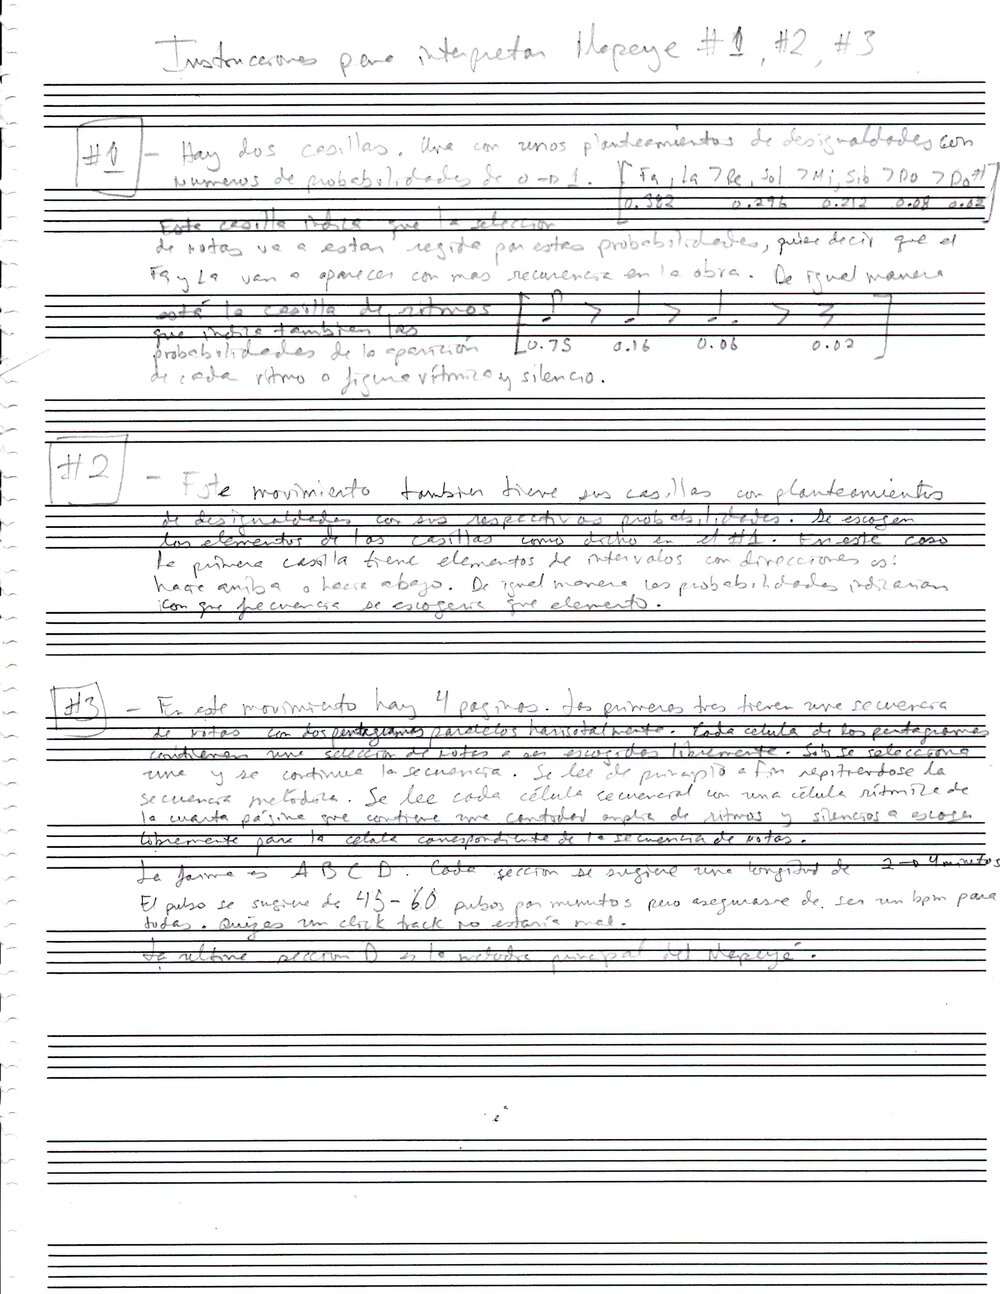 Instrucciones para interpretar Mapeyé #1, #2, #3
#1 - Hay dos casillas. Una con unos planteamientos de desigualdades con
numeros de probabilidades de 0 → 1. [Fa, La > Re, Sol > Mi, Sib > Do > Do#]
0.382 0.296 0.212 0.08 0.02
Esta casilla indica que la selección
de notas va a estar regida por estas probabilidades, quiere decir que el
Fa y La van a aparecer con mas recurencia en la obra. De igual manera
está la casilla de ritmos
que indica tambien las
0.75 0.16 0.06 0.02
probabilidades de la aparición
de cada ritmo o figura rítmica y silencio.
#2 - Este movimiento tambien tiene sus casillas con planteamientos
de desigualdades con sus respectivas probabilidades. Se escogen
los elementos de las casillas como dicho en el #1. En este caso
la primera casilla tiene elementos de intervalos con direcciones es:
hacia arriba o hacia abajo. De igual manera las probabilidades indicarian
con que frecuencia se escogeria que elemento.
#3 - En este movimiento hay 4 paginas. Las primeras tres tienen una secuencia
de notas con dos pentagramas paralelos horisotalmente. Cada célula de los pentagramas
contienen una selección de notas a ser escogidas libremente. Sólo se selecciona
una y se continua la secuencia. Se lee de principio a fin repitiendose la
secuencia melódica. Se lee cada célula secuencial con una célula rítmica de
la cuarta página que contiene una cantidad amplia de ritmos y silencios a escoger
libremente para la célula correspondiente de la secuencia de notas.
La forma es A B C D. Cada sección se sugiere una longitud de 2 → 4 minutos
El pulso se sugiere de 45-60 pulsos por minutos pero asegurarse de ser un bpm para
todas. Quizas un click track no estaría mal.
La ultima sección D es la melodia principal del Mapeyé.